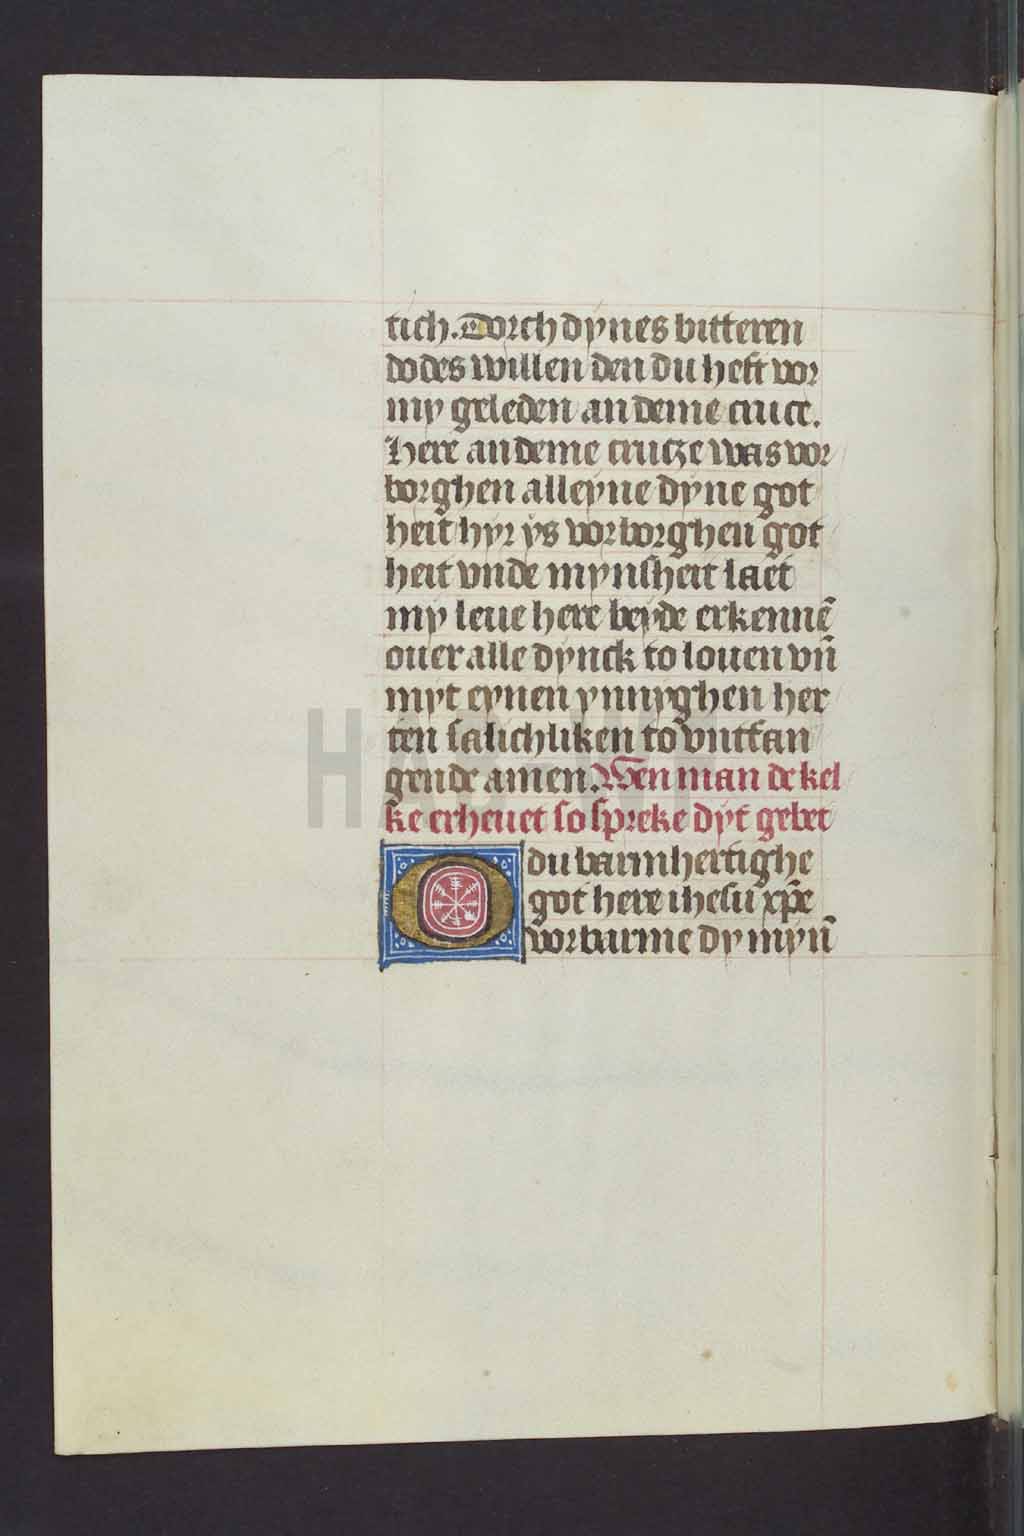 tich. Dorch dynes bitteren
dodes willen den du heft vor
my geleden an deme cruce.
Here an deme crutze was vor
borghen alleyne dyne got
heit hyr ys vorborghen got
heit vnde mynsheit laet
my leue here beyde erkennē
ouer alle dynck to louen vn̄
myt eynen ynnyghen her
ten salichliken to vntfan
gende amen. Wen man de kel
ke erheuet so spreke dyt gebet
O du barmhertighe
got here ihesu xp̄e
vorbarme dy myn̄
HAB-W